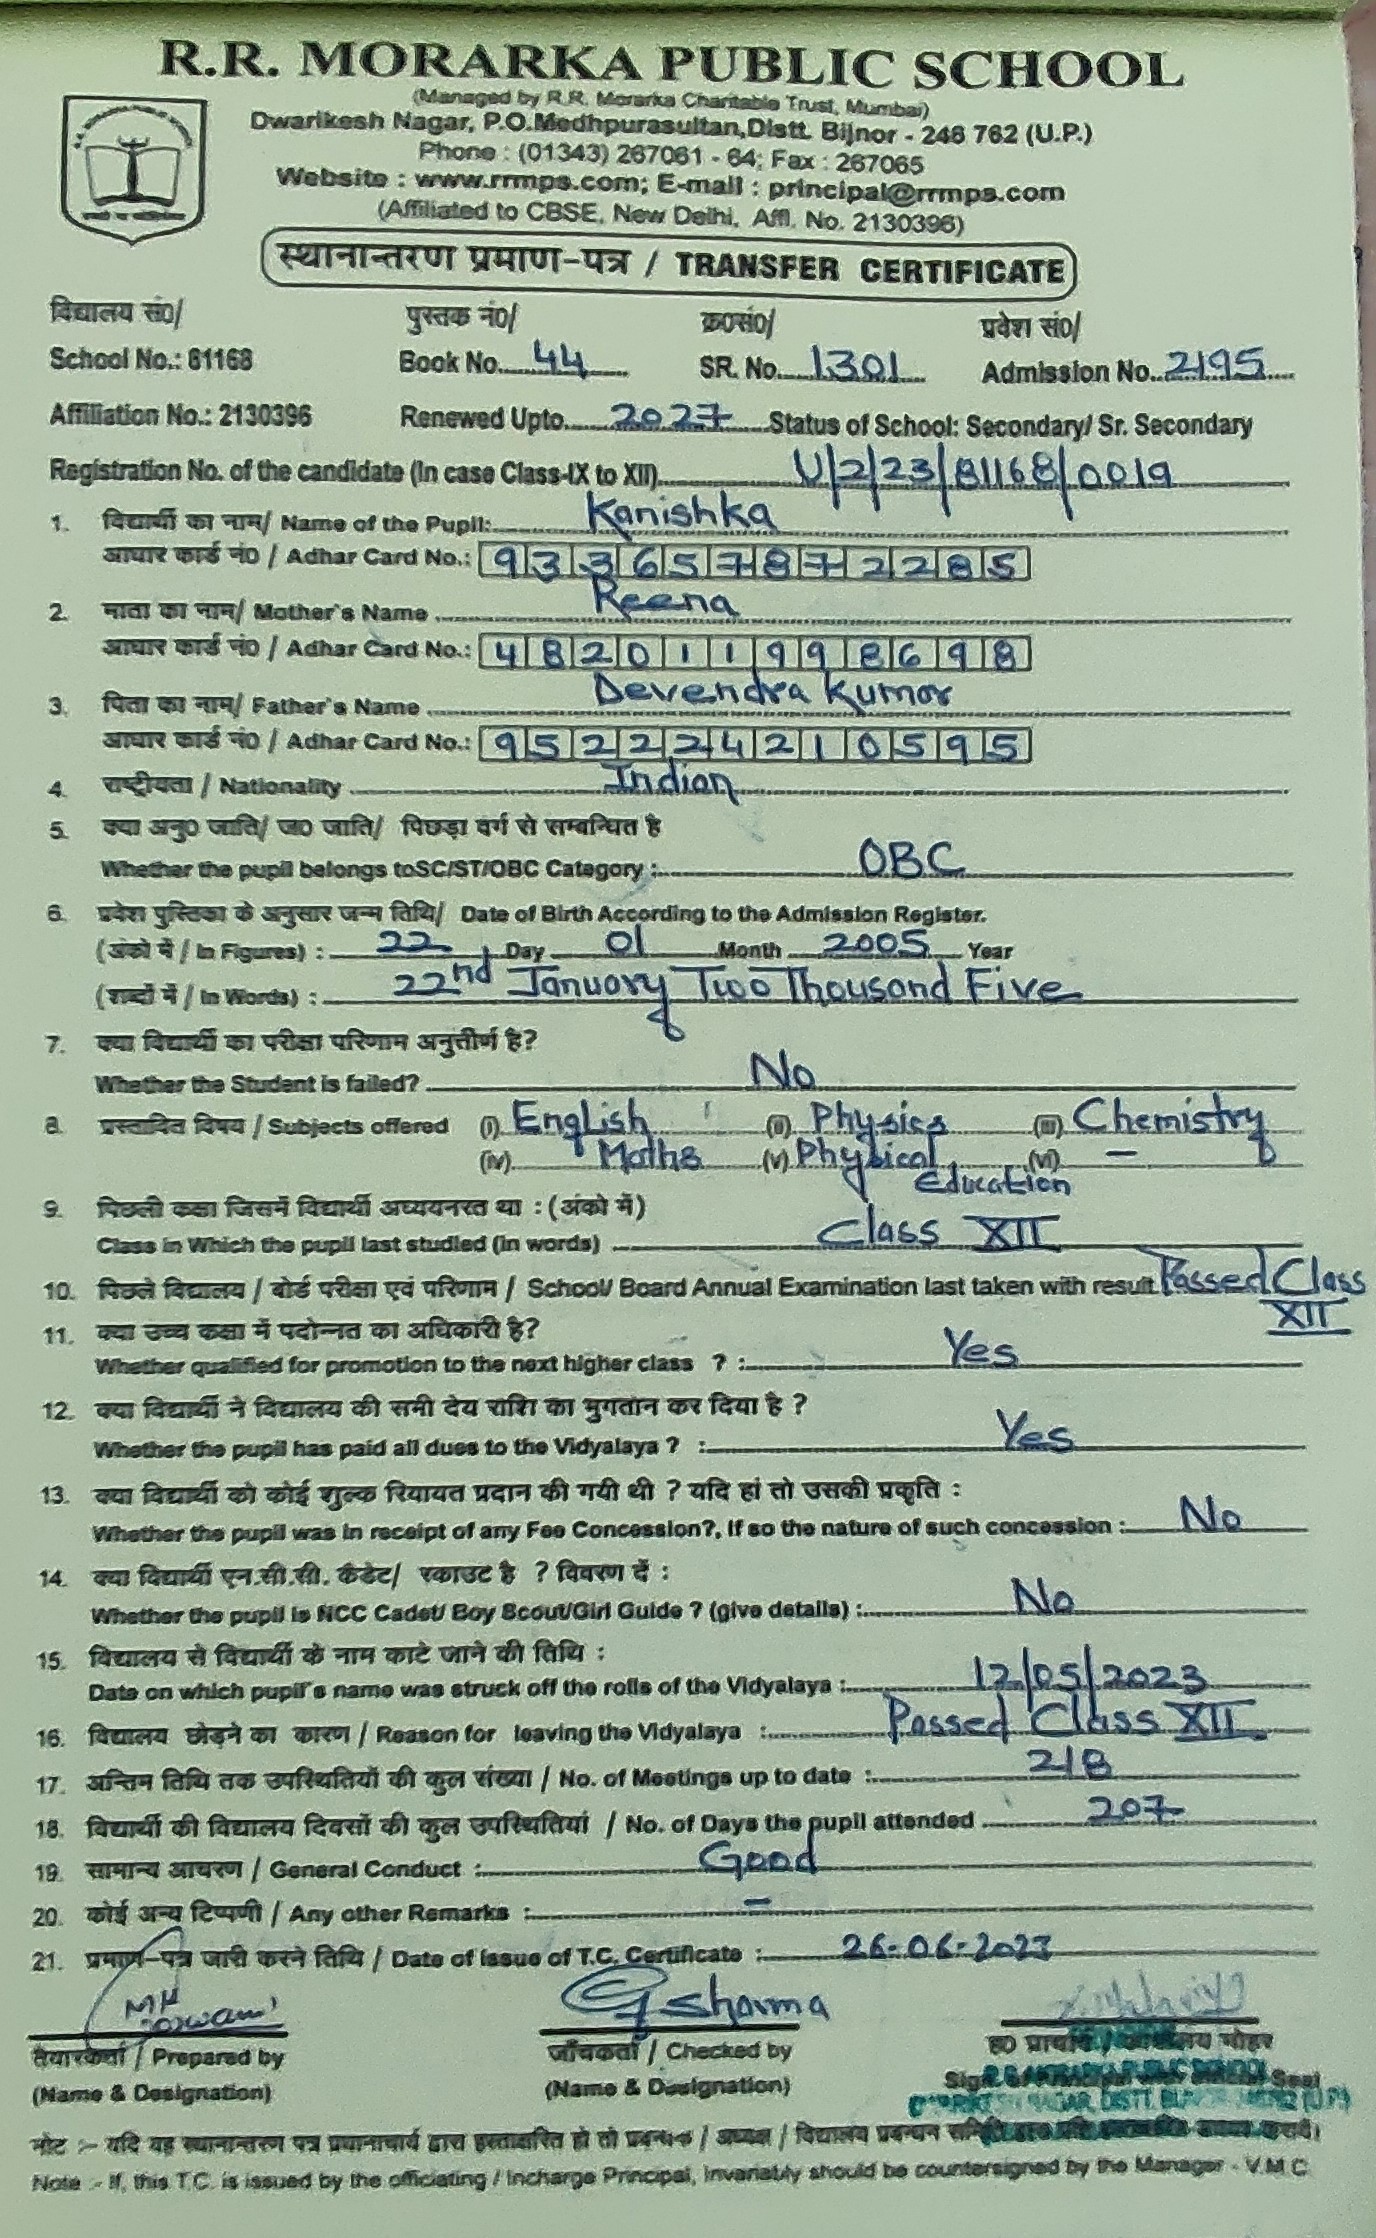 R.R. MORARKA PUBLIC SCHOOL
(Managed by R.R. Morarka Charitable Trust, Mumbai)
Dwarikesh Nagar, P.O.Medhpurasultan,Distt. Bijnor - 246 762 (U.P.)
Phone : (01343) 267061 - 64; Fax : 267065
Website : www.rrmps.com; E-mail : principal@rrmps.com
(Affiliated to CBSE, New Delhi, Affl. No. 2130396)
स्थानान्तरण प्रमाण-पत्र / TRANSFER CERTIFICATE
विद्यालय सं0/ पुस्तक नं0/ क्र0सं0/ प्रवेश सं0/
School No.: 81168 Book No. 44 SR. No. 1301 Admission No. 2195
Affiliation No.: 2130396 Renewed Upto 2027 Status of School: Secondary/ Sr. Secondary
Registration No. of the candidate (In case Class-IX to XII) U/2/23/81168/0019
1. विद्यार्थी का नाम/ Name of the Pupil: Kanishka
आधार कार्ड नं0 / Adhar Card No.: 933657872285
2. माता का नाम/ Mother's Name Reena
आधार कार्ड नं0 / Adhar Card No.: 482011998698
3. पिता का नाम/ Father's Name Devendra Kumar
आधार कार्ड नं0 / Adhar Card No.: 952224210595
4. राष्ट्रीयता / Nationality Indian
5. क्या अनु0 जाति/ ज0 जाति/ पिछड़ा वर्ग से सम्बन्धित है
Whether the pupil belongs toSC/ST/OBC Category : OBC
6. प्रवेश पुस्तिका के अनुसार जन्म तिथि/ Date of Birth According to the Admission Register.
(अंको में / In Figures) : 22 Day 01 Month 2005 Year
(शब्दों में / In Words) : 22nd January Two Thousand Five
7. क्या विद्यार्थी का परीक्षा परिणाम अनुत्तीर्ण है?
Whether the Student is failed? No
8. प्रस्तावित विषय / Subjects offered (i) English (ii) Physics (iii) Chemistry
(iv) Maths (v) Physical (vi) –
Education
9. पिछली कक्षा जिसमें विद्यार्थी अध्ययनरत था : (अंको में)
Class in Which the pupil last studied (in words) Class XII
10. पिछले विद्यालय / बोर्ड परीक्षा एवं परिणाम / School/ Board Annual Examination last taken with result Passed Class
XII
11. क्या उच्च कक्षा में पदोन्नत का अधिकारी है?
Whether qualified for promotion to the next higher class ? : Yes
12. क्या विद्यार्थी ने विद्यालय की सभी देय राशि का भुगतान कर दिया है ?
Whether the pupil has paid all dues to the Vidyalaya ? : Yes
13. क्या विद्यार्थी को कोई शुल्क रियायत प्रदान की गयी थी ? यदि हां तो उसकी प्रकृति :
Whether the pupil was in receipt of any Fee Concession?, if so the nature of such concession : No
14. क्या विद्यार्थी एन.सी.सी. कैडेट/ स्काउट है ? विवरण दें :
Whether the pupil is NCC Cadet/ Boy Scout/Girl Guide ? (give details) : No
15. विद्यालय से विद्यार्थी के नाम काटे जाने की तिथि :
Date on which pupil's name was struck off the rolls of the Vidyalaya : 12/05/2023
16. विद्यालय छोड़ने का कारण / Reason for leaving the Vidyalaya : Passed Class XII
17. अन्तिम तिथि तक उपस्थितियों की कुल संख्या / No. of Meetings up to date : 218
18. विद्यार्थी की विद्यालय दिवसों की कुल उपस्थितियां / No. of Days the pupil attended 207
19. सामान्य आचरण / General Conduct : Good
20. कोई अन्य टिप्पणी / Any other Remarks : –
21. प्रमाण-पत्र जारी करने तिथि / Date of issue of T.C. Certificate : 26-06-2023
G Sharma
तैयारकर्ता / Prepared by जाँचकर्ता / Checked by ह0 / मोहर
(Name & Designation) (Name & Designation) Seal
R.R. MORARKA PUBLIC SCHOOL
NAGAR, DISTT. (U.P.)
नोट :- यदि यह स्थानान्तरण पत्र प्रधानाचार्य द्वारा हस्ताक्षरित हो तो प्रबन्धक / अध्यक्ष / विद्यालय प्रबन्धन
Note :- If, this T.C. is issued by the officiating / Incharge Principal, Invariably should be countersigned by the Manager - V.M.C